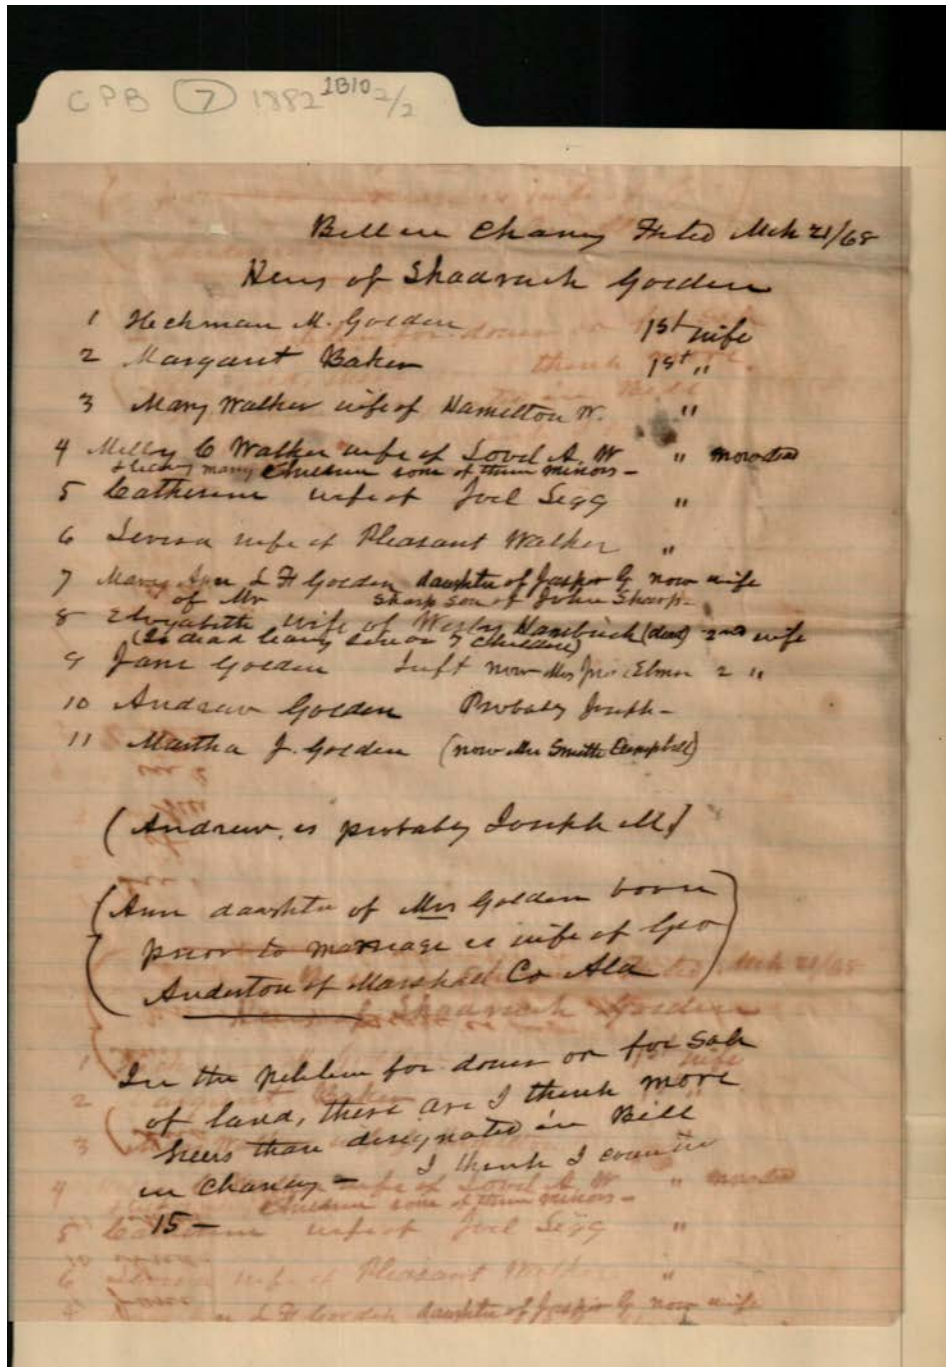 CPB 7 1882 1B10 2/2
Bill in Chancy Filed Mch 21/68
Heirs of Shadrach Golden
1 Heckman M. Golden 1st wife
2 Margaret Baker 1st "
3 Mary Walker wife of Hamilton W. "
4 Milly C Walker wife of Lovel A. W " now dead
& leaving many children some of them minors -
5 Catherine wife of Joel Segg "
6 Levisa wife of Pleasant Walker "
7 Mary Ann L F Golden daughter of Jasper G now wife
of Mr Sharp son of John Sharp -
8 Elizabeth wife of Wesley Hambrick (dead) 2nd wife
(Is dead leaving seven 7 children)
9 Jane Golden now Mrs Elmer 2 "
10 Andrew Golden Probably Joseph -
11 Martha J. Golden (now Mrs Smith Campbell)
(Andrew is probably Joseph M)
(Ann daughter of Mrs Golden born
prior to marriage is wife of Geo
Anderton of Marshall Co Ala)
In the petition for dower or for sale
of land, there are I think more
heirs than designated in Bill
in Chancy - I think I counted
15 -